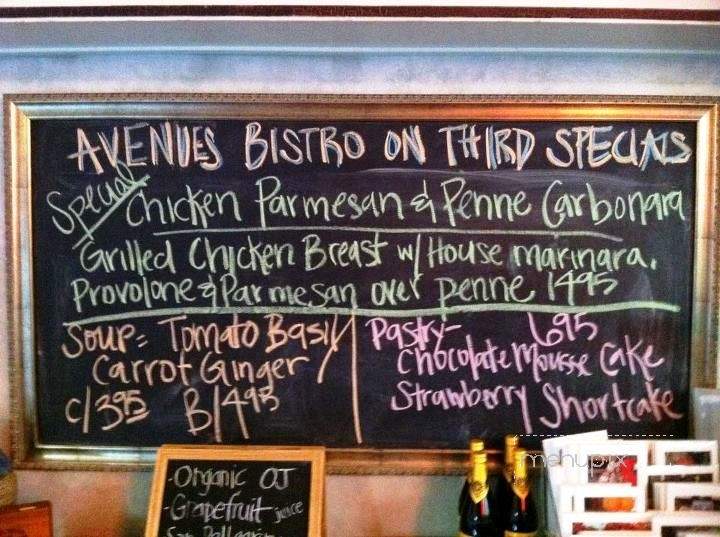 AVENUES BISTRO ON THIRD SPECIALS
Special Chicken Parmesan & Penne Carbonara
Grilled Chicken Breast w/ House marinara,
Provolone & Parmesan over penne 14 95
Soup: Tomato Basil/
Carrot Ginger
C/3 95 B/4 95
Pastry- 6 95
Chocolate Mousse Cake
Strawberry Shortcake
-Organic OJ
-Grapefruit juice
San Pellegrin
menupix